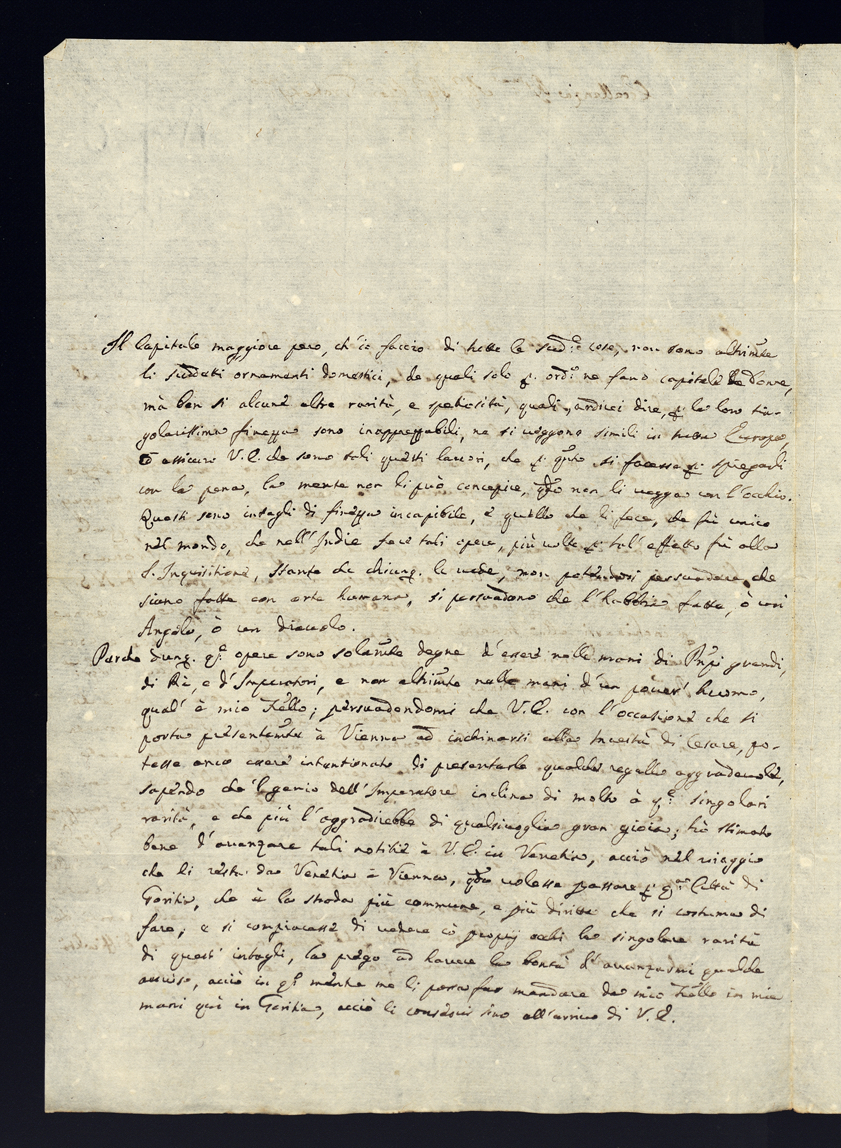 Il Capitale maggiore però, ch'io faccio di tutte le sud.e cose, non sono altrim.te
li sudetti ornamenti domestici, de quali solo p. ord.o ne fano capitale le Donne,
mà ben si alcune altre rarità, e spetiosità, quali, andirei dire, p. la loro sin-
golarissima finezza sono inapprezzabili, ne si veggono simili in tutta Europa,
ed assicuro V.E. che sono tali questi lavori, che p. q.nto si facesse p. spiegarli
con la pena, la mente non li può concepire, q.do non li vegga con l'occhio.
Questi sono intagli di finezza incapibile, e quello che li fece, che fù unico
nel mondo, che nell'Indie fece tali opere, più volte p. tal' effetto fù alla
S. Inquisitione, stante che chiunq. le vede, non potendosi persuadere che
siano fatte con arte humana, si persuadono che l'habbia fatte, ò un
Angelo, ò un diavolo.
Perche dunq. q.e opere sono solam.te degne d'essere nelle mani di Pnpi grandi,
di Rè, e d'Imperatori, e non altrim.te nelle mani d'un pover' huomo,
qual' è mio F.ello; persuadendomi che V.E. con l'occasione che si
porta presentem.te à Vienna ad inchinarsi alla Maestà di Cesare, po-
tesse anco essere intentionato di presentarle qualche regallo aggradevole,
sapendo che 'l genio dell'Imperatore inclina di molto à q.e singolari
rarità, e che più l'aggradirebbe di qualsivoglia gran gioia; hò stimato
bene d'avanzare tali notitie à V.E. in Venetia, acciò nel viaggio
che li resta da Venetia à Vienna, q.do volesse passare p. q.a Città di
Goritia, che è la strada più commune, e più diritta che si costuma di
fare; e si compiacesse di vedere cò proprij occhi la singolare rarità
di questi intagli, la prego ad havere la bontà d'avanzarmi qualche
avviso, acciò in q.o mentre me li possa far mandare da mio F.ello in mie
mani quì in Goritia, acciò li conservi sino all'arrivo di V.E.